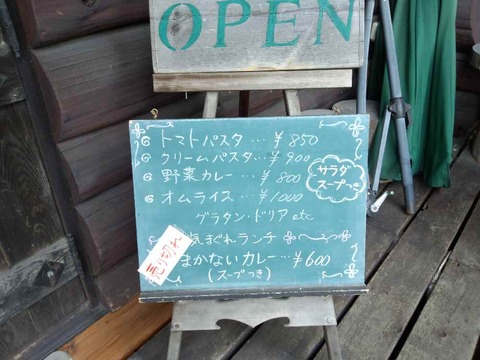 OPEN
トマトパスタ…¥850
クリームパスタ…¥900
野菜カレー…¥800
オムライス…¥1000
サラダ
スープつき
グラタン・ドリア etc
気まぐれランチ
売り切れ
まかないカレー…¥600
(スープつき)